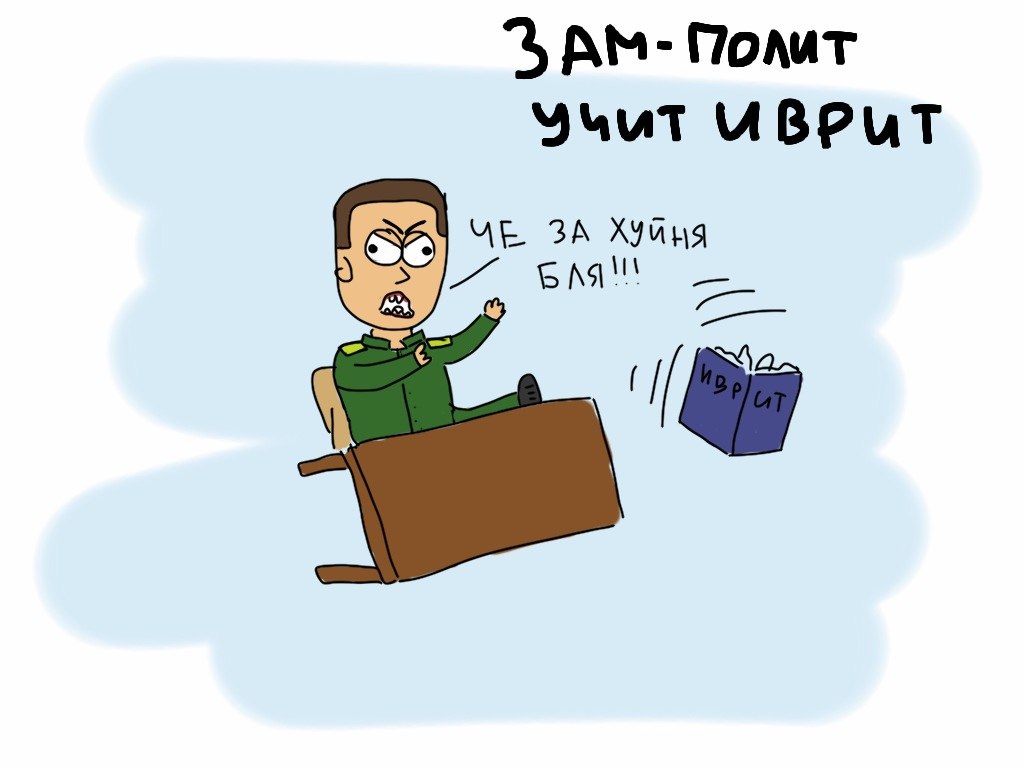 ЗАМ-ПОЛИТ
УЧИТ ИВРИТ
ЧЕ ЗА ХУЙНЯ
БЛЯ!!!
ИВРИТ